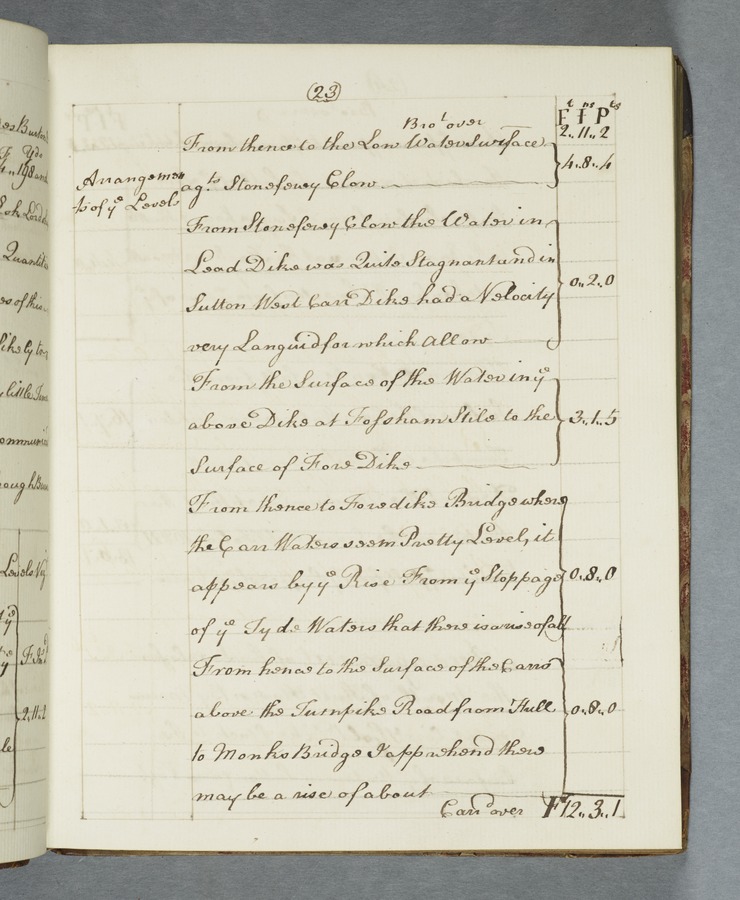 (23)
Bro.t over
F.t I.ns P.ts
2,, 11,, 2
From thence to the Low Water Surface
ag.t Stoneferry Clow
4,, 8,, 4
Arrangemen
ts of y.e Levels
From Stoneferry Clow the Water in
Lead Dike was Quite Stagnant and in
Sutton West Carr Dike had a Velocity
very Languid for which allow
0,, 2,, 0
From the Surface of the Water in y.e
above Dike at Fofsham Stile to the
Surface of Fore Dike
3,, 1,, 5
From thence to Foredike Bridge where
the Carr Waters seem Pretty Level, it
appears by y.e Rise From y.e Stoppage
of y.e Tyde Waters that there is a rise of abt
0,, 8,, 0
From hence to the Surface of the Carrs
above the Turnpike Road from Hull
to Monks Bridge I apprehend there
may be a rise of about
0,, 8,, 0
Carr.d over F.t 12,, 3,, 1